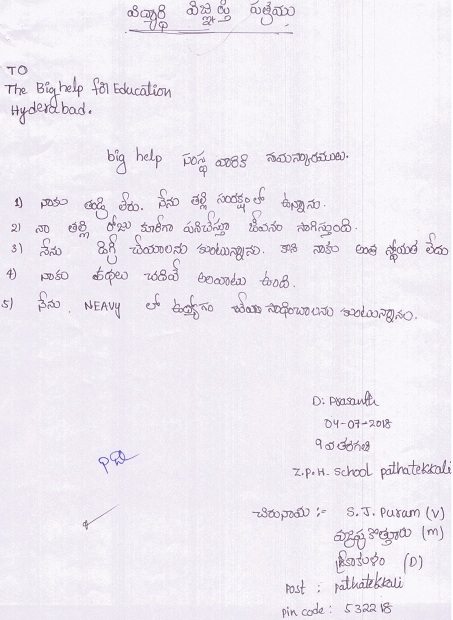 విద్యార్థి విజ్ఞప్తి పత్రము
TO
The Big help for Education
Hyderabad.
big help సంస్థ వారికి నమస్కారములు.
1) నాకు తండ్రి లేరు. నేను తల్లి సంరక్షంలో ఉన్నాను.
2) నా తల్లి రోజు కూలీగా పనిచేస్తూ జీవనం సాగిస్తుంది.
3) నేను డిగ్రీ చేయాలను కుంటున్నాను. కాని నాకు అంత స్థోయత లేదు
4) నాకు కథలు చదివే అలయాటు ఉంది.
5) నేను NEAVY లో ఉద్యోగం సాధించాలను కుంటున్నాను.
D. Prasanth
04-07-2018
9 వ తరగతి
Z.P.H. School pathatekkali
చిరునామ :- S.J. Puram (V)
కొత్తూరు (m)
శ్రీకాకుళం (D)
Post : pathatekkali
pin code : 532218